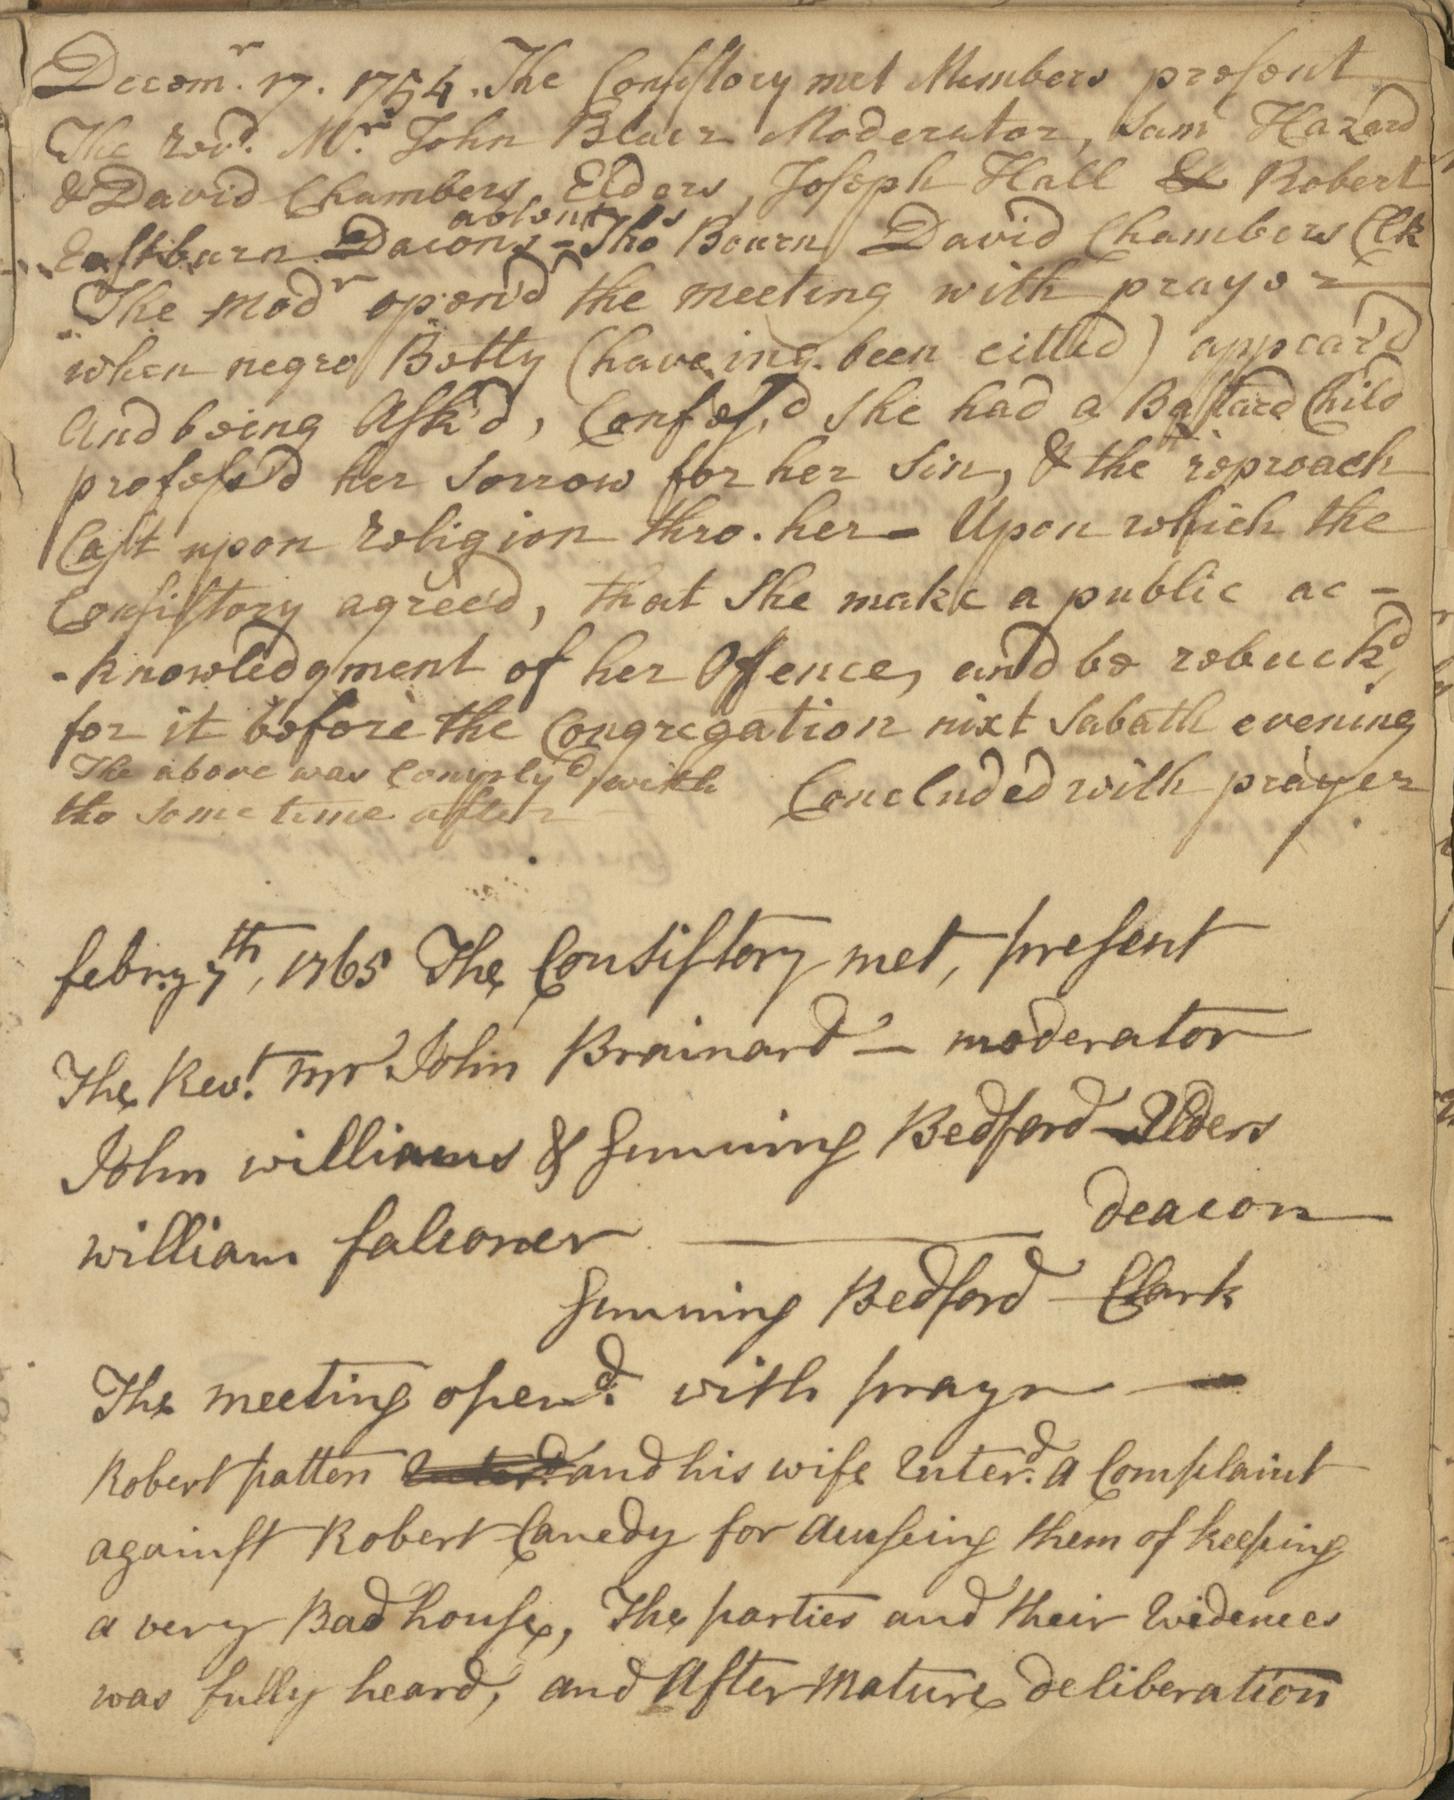 Decemr. 17. 1754. The Consistory met Members present
The revd. Mr. John Blair Moderator, Saml Hazard
& David Chambers, Elders, Joseph Hall & Robert
Eastburn Dacons - absent Thos Bourn David Chambers Clk
The modr open'd the meeting with prayer
when negro Betty (haveing been citted) appear'd
And being Ask'd, Confess'd She had a Bastard Child
profess'd her Sorrow for her Sin, & the reproach
Cast upon religion thro. her - Upon which the
Consistory agree'd, that She make a public ac-
-knowledgment of her Offence, and be rebuck'd,
for it before the Congregation nixt Sabath evening
The above was Comply'd with Concluded with prayer
tho Some time after
febry 7th, 1765 The Consistory met, present
The Revt. mr John Brainard - moderator
John williams & Gunning Bedford - Elders
william falconer deacon
Gunning Bedford Clark
The meeting opend. with prayr
Robert patten and his wife Enterd. A Complaint
against Robert Canedy for Acuseing them of keeping
a very Bad house, The parties and their Evidences
was fully heard, and After Mature deliberation